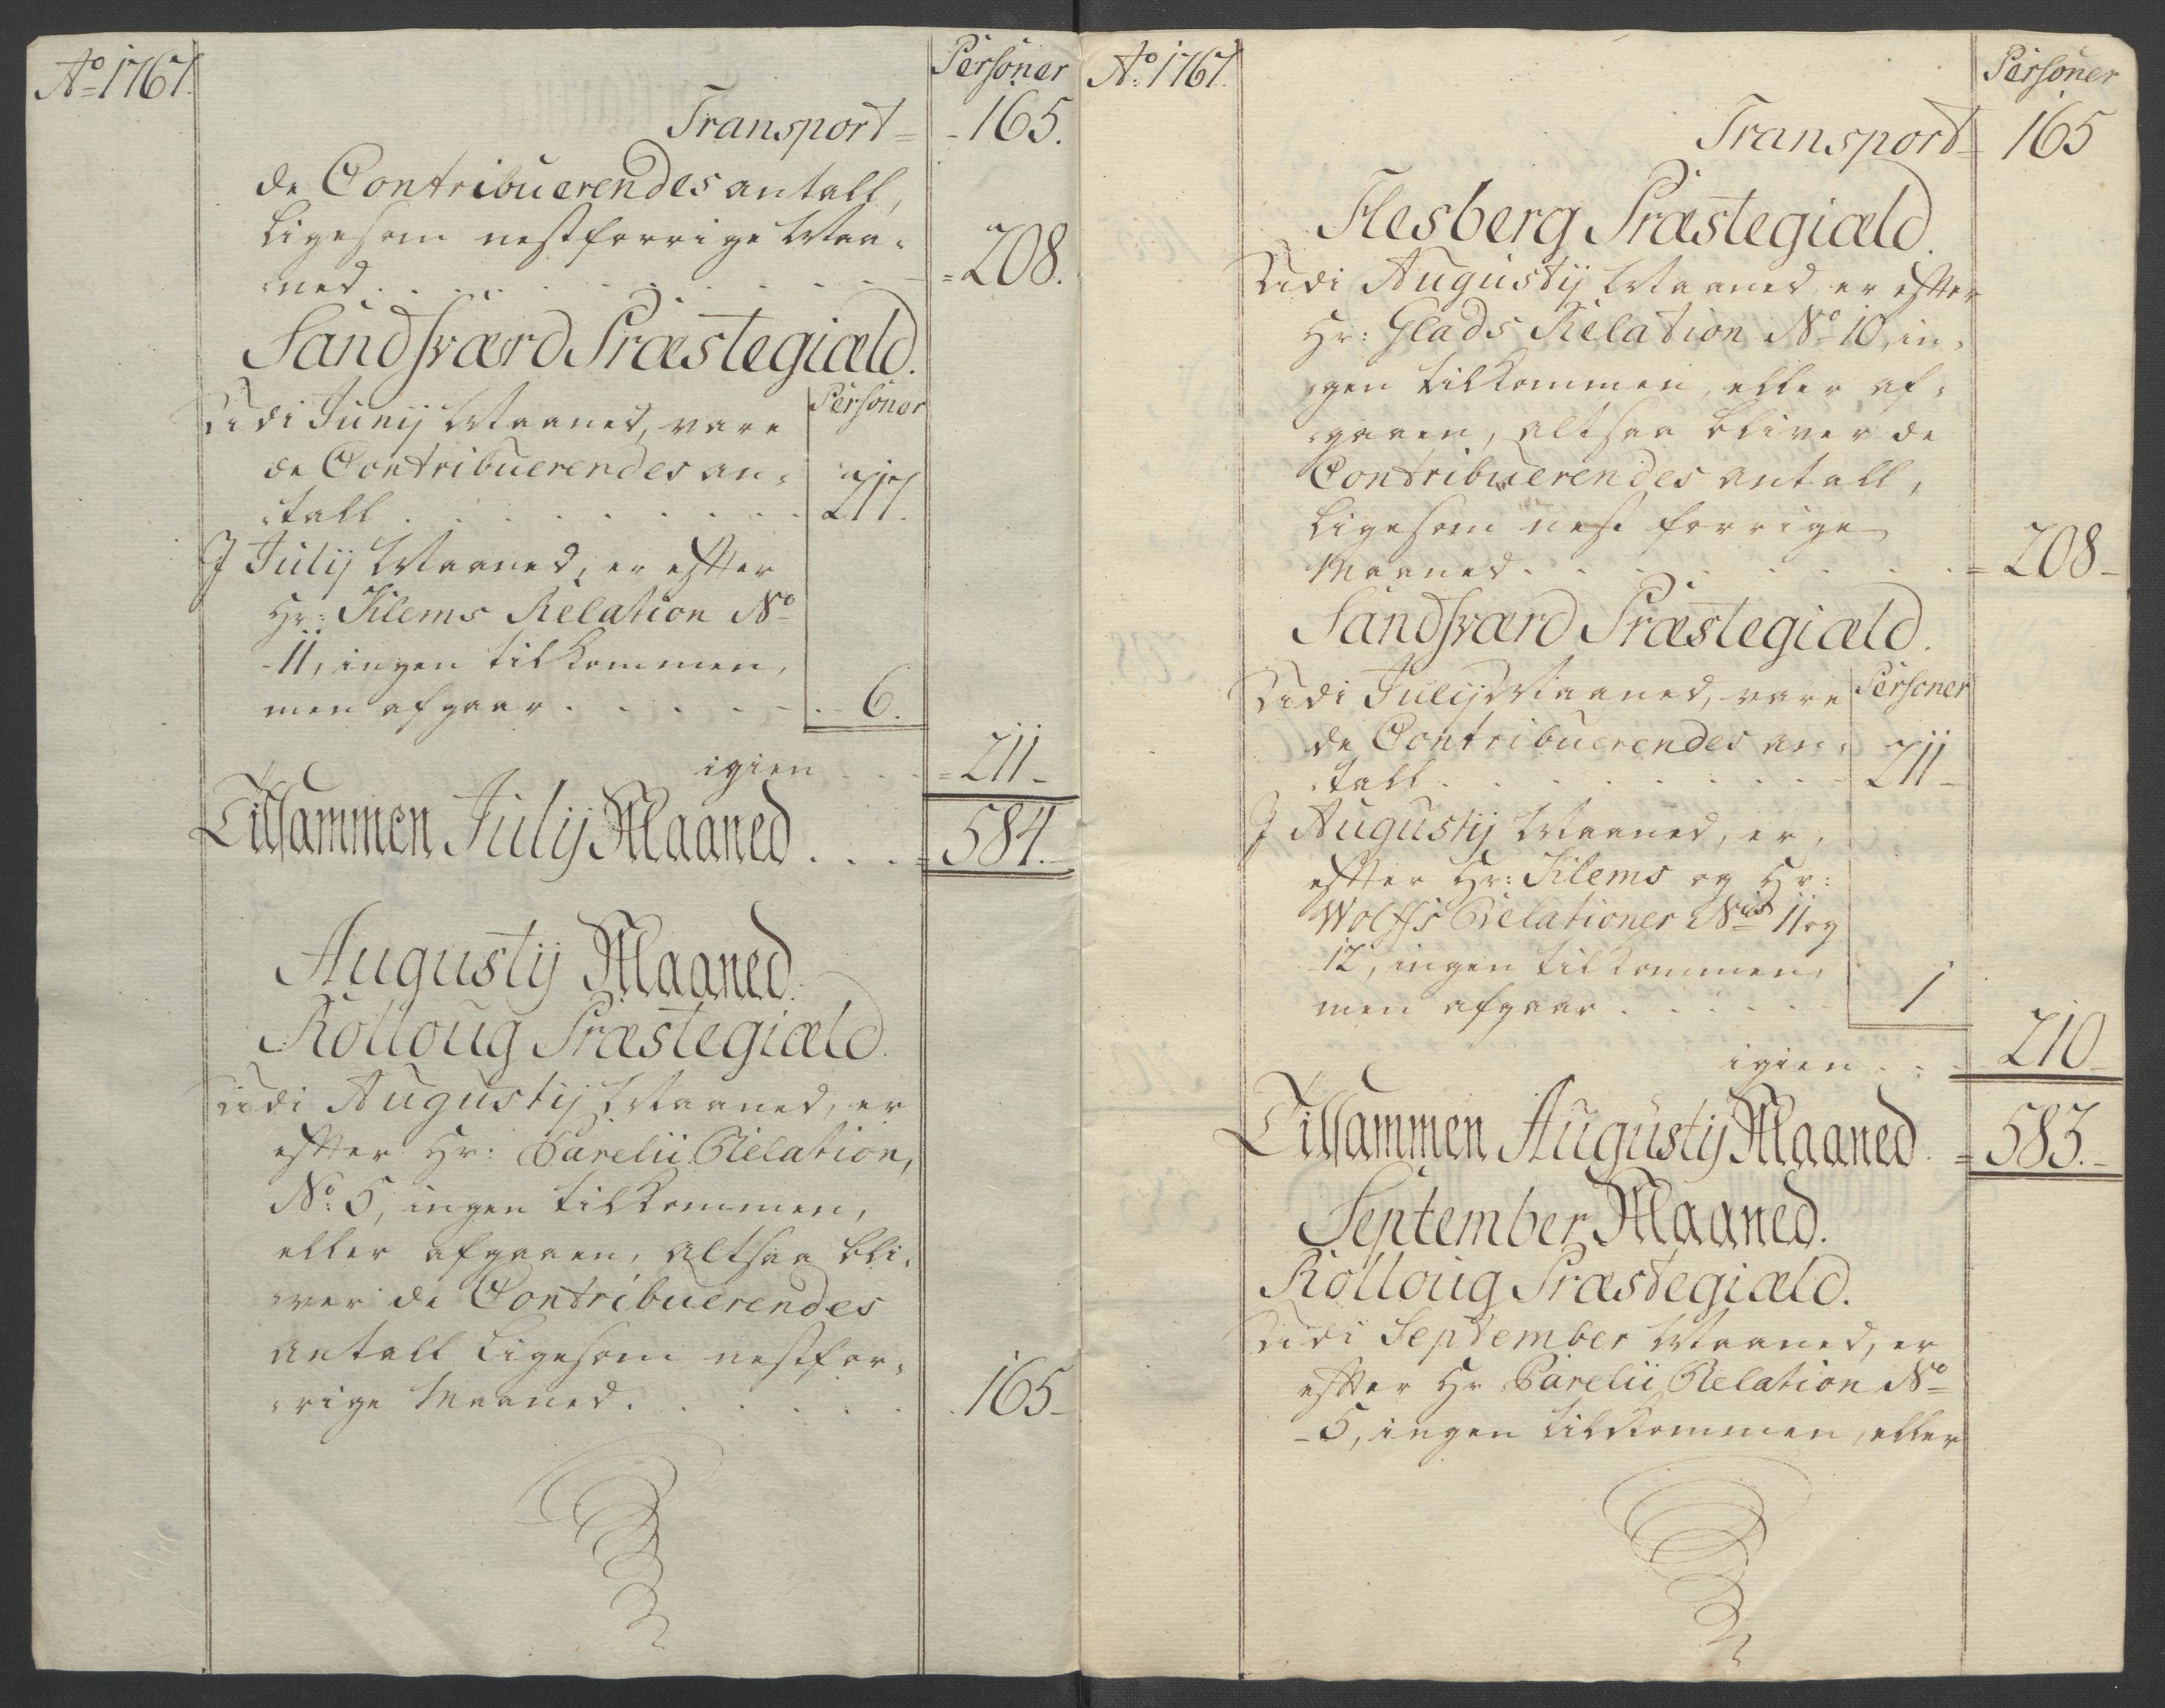 Ao 1767.
Personer
Transport = - 165.
de Contribuerendes antall,
ligesom nestforrige Maa-
ned . . . . . . . . . . = 208.
Sandsværd Præstegiæld.
Udi Junij Maaned, vare Personer
de Contribuerendes an-
tall . . . . . . . . 217.
I Julij Maaned, er efter
Hr: Klems Relation No
11, ingen tilkommen,
men afgaar . . . . . - . 6.
igien . . . = 211 -
Tilsammen Julij Maaned . . . . = 584. -
Augustij Maaned.
Rolloug Præstegiæld.
Udi Augustij Maaned, er
efter Hr: Parelii Relation,
No: 5, ingen tilkommen,
eller afgaaen, altsaa bli-
ver de Contribuerendes
antall ligesom nestfor-
rige Maaned . . . . . . 165 -
Ao: 1767.
Personer
Transport = 165
Flesberg Præstegiæld.
Udi Augustij Maaned, er efter
Hr: Glads Relation No 10, in-
gen tilkommen, eller af-
gaaen, altsaa bliver de
Contribuerendes antall,
ligesom nest forrige
Maaned . . . . . . . . = 208 -
Sandsværd Præstegiæld.
Udi Julij Maaned, vare Personer
de Contribuerendes an-
tall . . . . . . . - 211 -
I Augustij Maaned, er,
efter Hr: Klems og Hr:
Wolffs Relationer Nis 11 og
12, ingen tilkommen,
men afgaar . . . . . . 1
igien . . . 210 -
Tilsammen Augustij Maaned. = 583. -
September Maaned.
Rolloug Præstegiæld.
Udi September Maaned, er
efter Hr Parelii Relation No
- 5, ingen tilkommen, eller